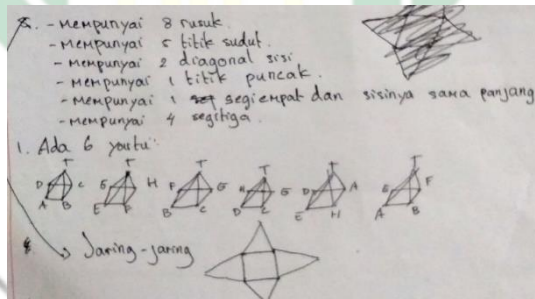 8. - Mempunyai 8 rusuk.
- Mempunyai 5 titik sudut.
- Mempunyai 2 diagonal sisi
- Mempunyai 1 titik puncak.
- Mempunyai 1 segiempat dan sisinya sama panjang
- Mempunyai 4 segitiga.
1. Ada 6 yaitu:
T T T T T T
D C G H F G H G D A E F
A B E F B C D C E H A B
Jaring-jaring